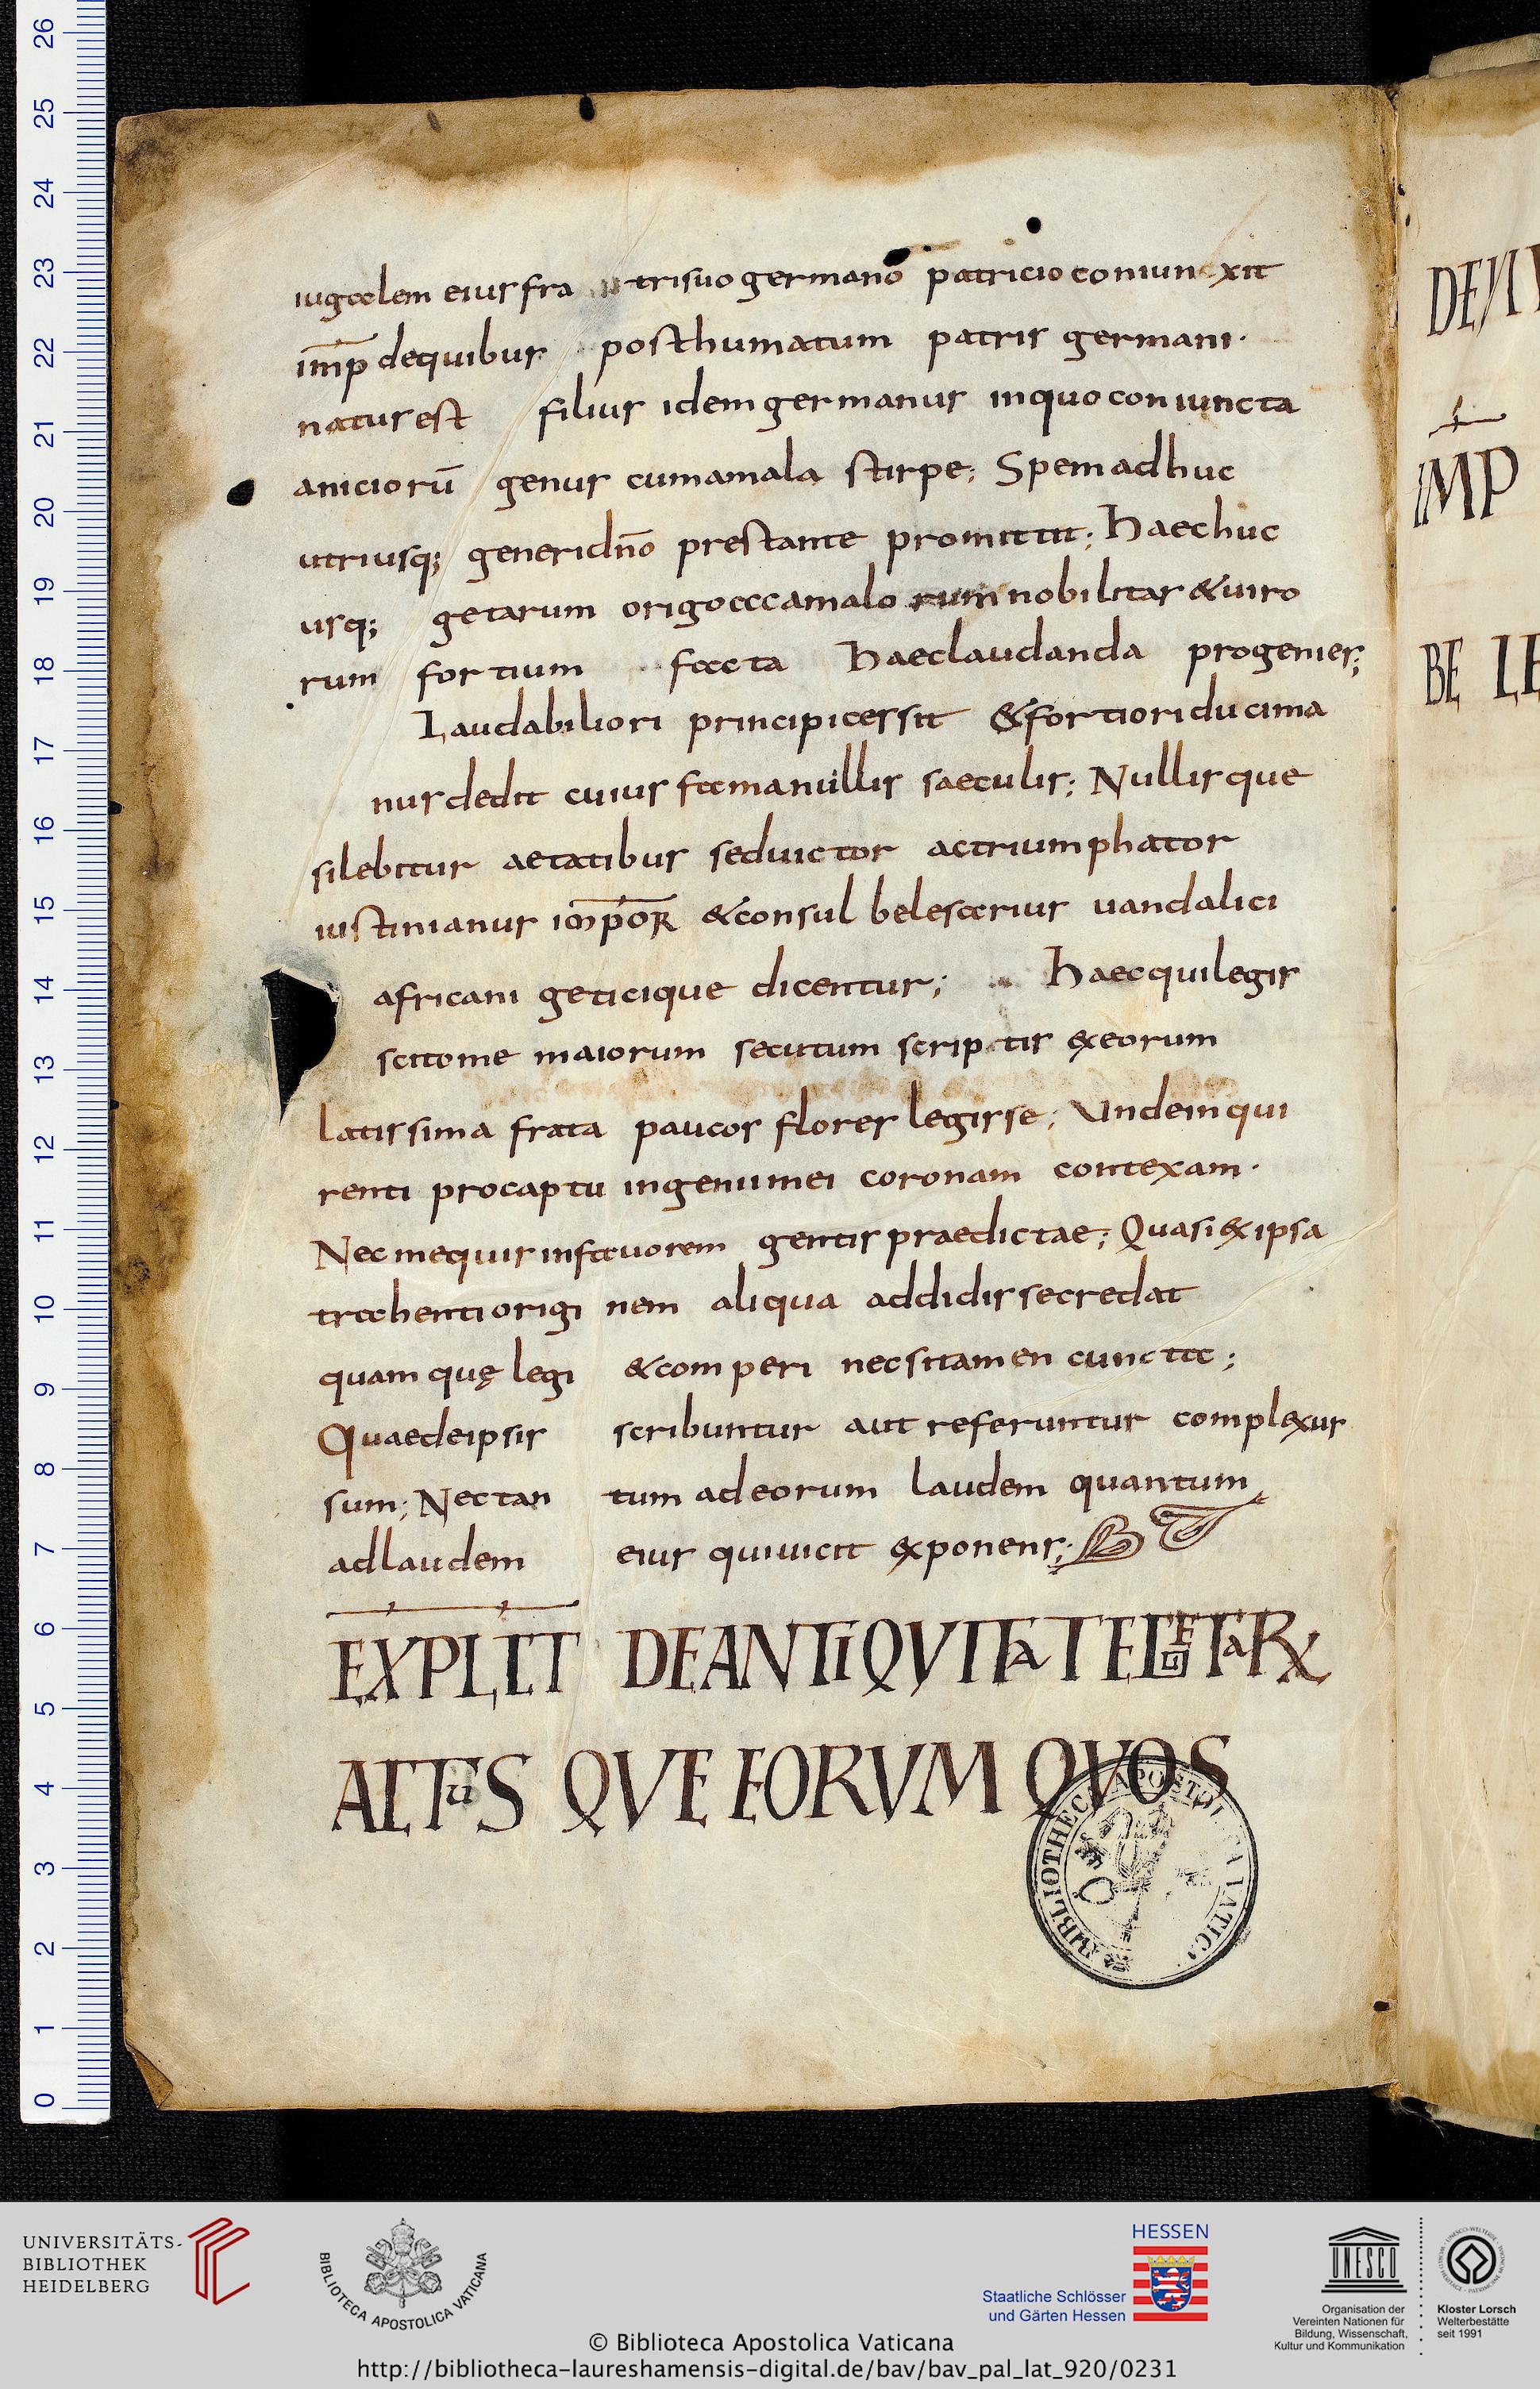 iugalem eius fra trisuo germano patricio coniunxit
imp̅ dequibus posthumatum patris germani·
naturest filius idem germanus inquo coniuncta
aniciorū genus cumamala stirpe; Spem adhuc
utriusq; generi dn̄o prestante promittit; Haechuc
usq; getarum origo ac amalo rum nobilitas & uiro
rum fortium facta haeclaudanda progenies;
Laudabiliori principi cessit & fortiori duci ma
nus dedit cuius fama nullis saeculis; Nullisque
silebitur aetatibus sed uictor ac triumphator
iustinianus imp̅or & consul belesarius uandalici
africani geticique dicentur; Haec qui legis
scito me maiorum secutum scriptis ex eorum
latissima frata paucos flores legisse; Unde inqui
renti pro captu ingenii mei coronam contexam·
Nec me quis infauorem gentis praedictae; Quasi ex ipsa
trahenti origi nem aliqua addidisse credat
quam quę legi & comperi nec si tamen cuncta;
Quae de ipsis scribuntur aut referuntur complexus
sum; Nec tan tum ad eorum laudem quantum
ad laudem eius qui uicit exponens;
EXPLIT DE ANTIQUITATE GETAR
ACTUSQUE EORUM QUOS
BIBLIOTHECA APOSTOLICA VATICA
DE
IMP
BE LE
26
25
24
23
22
21
20
19
18
17
16
15
14
13
12
11
10
9
8
7
6
5
4
3
2
1
0
UNIVERSITÄTS-
BIBLIOTHEK
HEIDELBERG
BIBLIOTECA APOSTOLICA VATICANA
HESSEN
Staatliche Schlösser
und Gärten Hessen
UNESCO
Organisation der
Vereinten Nationen für
Bildung, Wissenschaft,
Kultur und Kommunikation
Kloster Lorsch
Welterbestätte
seit 1991
© Biblioteca Apostolica Vaticana
http://bibliotheca-laureshamensis-digital.de/bav/bav_pal_lat_920/0231